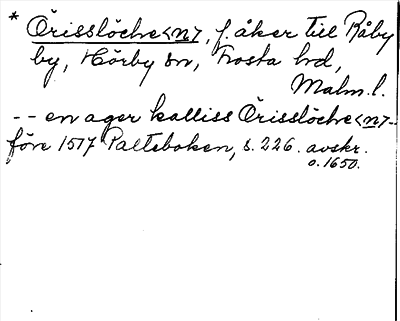 * Örisslöche<n>, f. åker till Råby
by, Hörby sn, Frosta hd,
Malm. l.
-- en ager kalliss Örisslöche<n> --
före 1517 Palteboken, s. 226. avskr.
o. 1650.